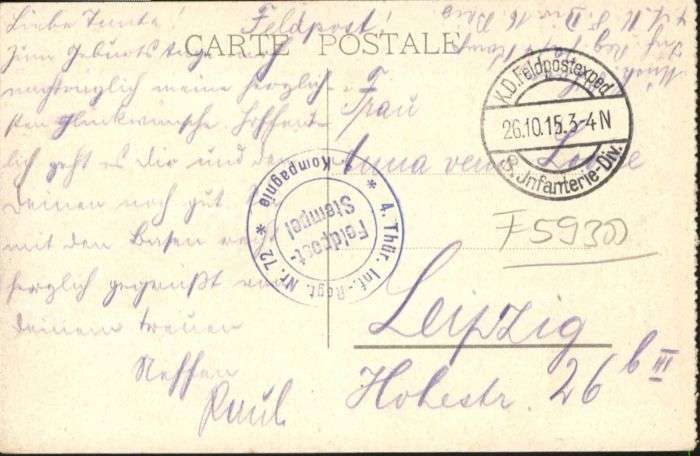 Feldpost!
CARTE POSTALE
Liebe Tante!
Zum Geburtstage
nachträglich meine herzlich-
sten Glückwünsche. Hoffent-
lich geht es Dir und den
Deinen noch gut.
mit den Besten
herzlich gegrüßt von
Deinem treuen
Neffen
Paul
Frau
Anna verw.
Leipzig
Hohestr. 26 b III
K.D. Feldpostexped.
26.10.15. 3-4 N
8. Infanterie-Div.
* 4. Thür. Inf.-Regt. Nr. 72 *
Kompagnie
Feldpost-
Stempel
F 59300